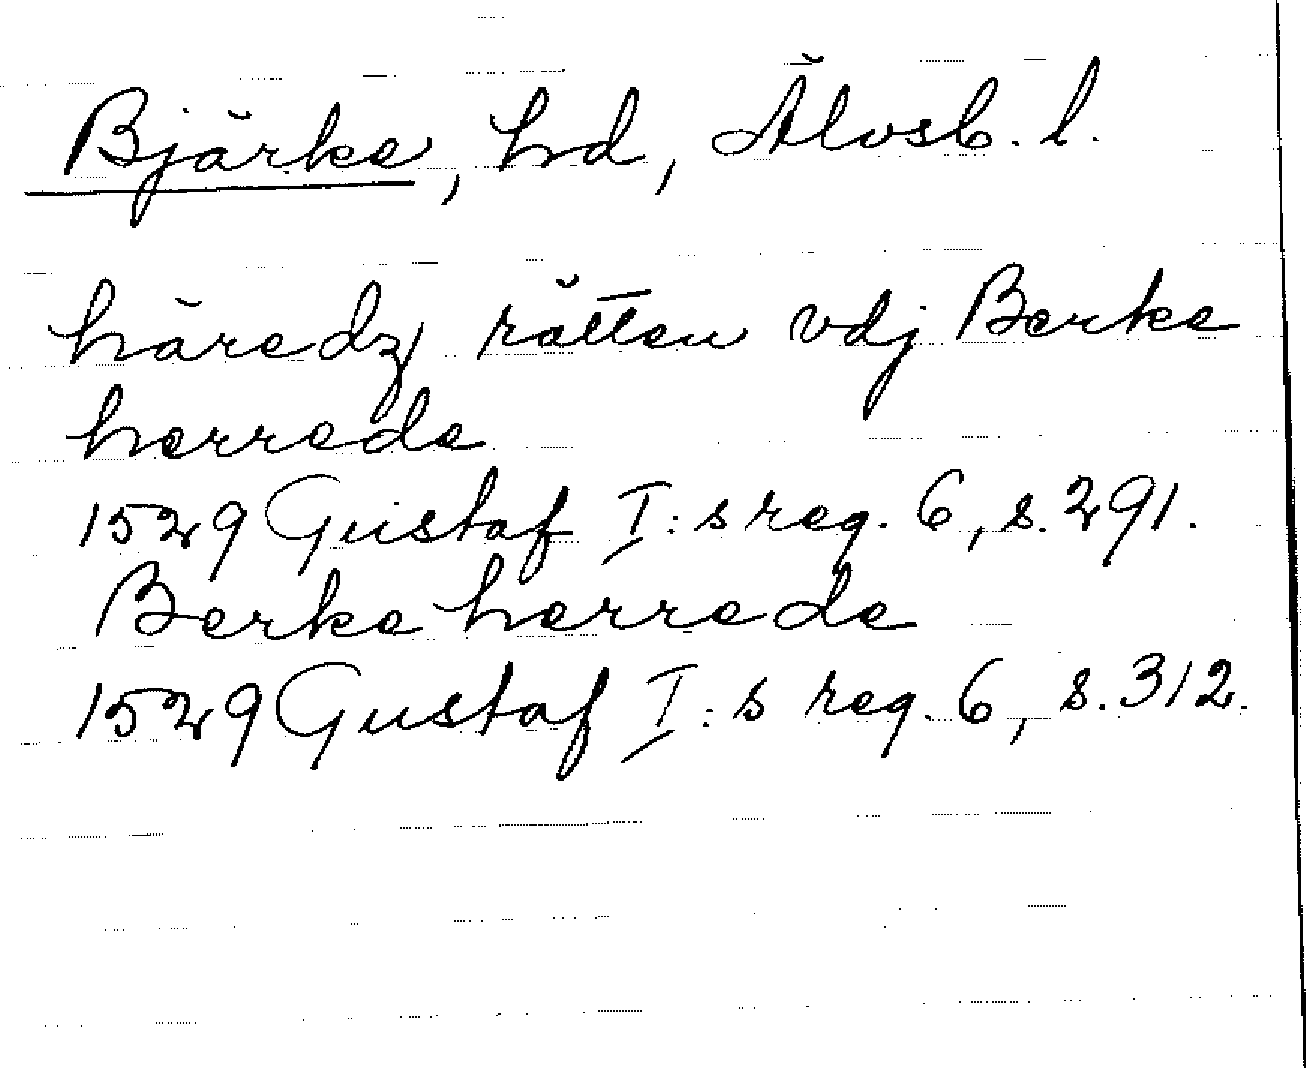 Bjärke, hd, Älvsb. l.
häredz rätten vdj Berke
herrede
1529 Gustaf I:s reg. 6, s. 291.
Berke herrede
1529 Gustaf I:s reg. 6, s. 312.